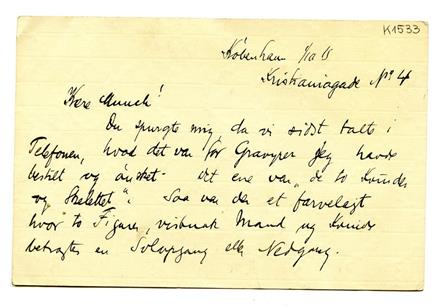 K1533
København 1/10 15
Kristianiagade No 4
Kære Munch!
Du spurgte mig, da vi sidst talte i
Telefonen, hvad det var for Gravyrer jeg havde
bestilt og ønsket. Det ene var "de to Kvinder
og Skelettet". Saa var der et farvelagt
hvor to Figurer, Mand og Kvinde
betragter en Solopgang eller Nedgang.